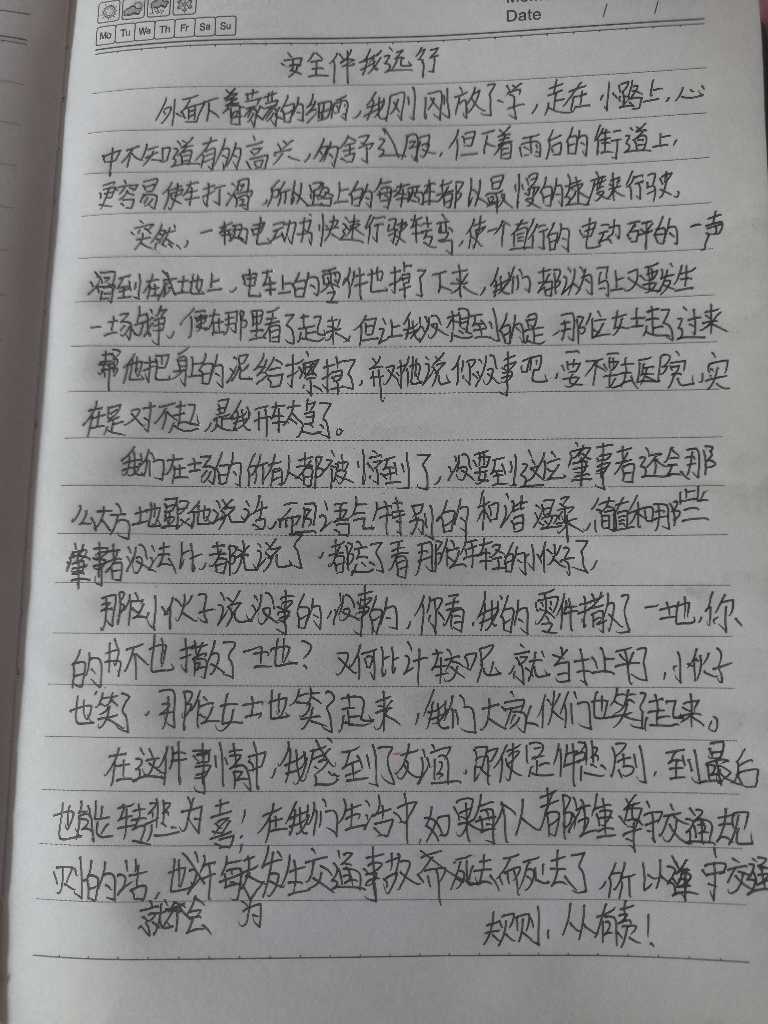 Date / /
Mo Tu We Th Fr Sa Su
安全伴我远行
外面下着蒙蒙的细雨,我刚刚放了学,走在小路上,心
中不知道有的高兴,的舒服,但下着雨后的街道上,
更容易使车打滑,所以路上的每辆车都以最慢的速度来行驶。
突然,一辆电动书快速行驶转弯,使一个直行的电动砰的一声
滑到在地上,电车上的零件也掉了下来,我们都认为马上又要发生
一场争,便在那里看了起来,但让我没想到的是,那位女士走了过来
帮他把身上的泥给擦掉了,并对他说你没事吧,要不要去医院,实
在是对不起,是我开车太急了。
我们在场的所有人都被惊到了,没要到这位肇事者还会那
么大方地跟他说话,而且语气特别的和谐温柔,简值和那些
肇事者没法比,都光说了,都忘了看那位年轻的小伙子了,
那位小伙子说没事的,没事的,你看,我的零件撒了一地,你
的书不也撒了一地?又何比计较呢,就当扯平了,小伙子
也笑了,那位女士也笑了起来,我们大家伙们也笑了起来。
在这件事情中,我感到了友谊,即使是件悲剧,到最后
也能转悲为喜!在我们生活中,如果每个人都注重尊守交通规
则的话,也许每天发生交通事故而死去而死去了,所以遵守交通
就不会 为
规则,人人有责!